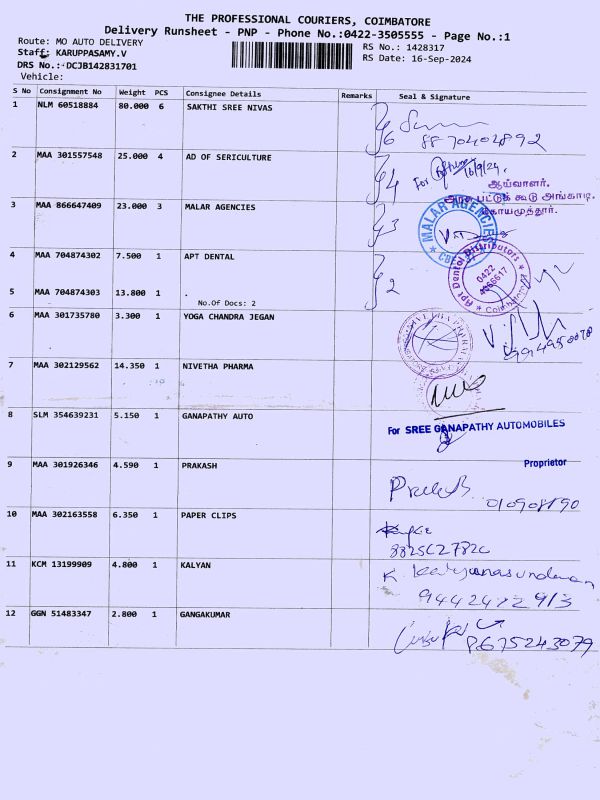 THE PROFESSIONAL COURIERS, COIMBATORE
Delivery Runsheet - PNP - Phone No.:0422-3505555 - Page No.:1
Route: MO AUTO DELIVERY
RS No.: 1428317
Staff: KARUPPASAMY.V
RS Date: 16-Sep-2024
DRS No.: DCJB142831701
Vehicle:
S No Consignment No Weight PCS Consignee Details Remarks Seal & Signature
1 NLM 60518884 80.000 6 SAKTHI SREE NIVAS
6
8870404892
2 MAA 301557548 25.000 4 AD OF SERICULTURE
4 For 16/9/24
ஆய்வாளர்.
அரசு பட்டுக் கூடு அங்காடி,
கோயமுத்தூர்.
3 MAA 866647409 23.000 3 MALAR AGENCIES
3
MALAR AGENCIES
4 MAA 704874302 7.500 1 APT DENTAL
2
Apt Dental Distributors
0422
Coimbatore
5 MAA 704874303 13.800 1 .
No.Of Docs: 2
6 MAA 301735780 3.300 1 YOGA CHANDRA JEGAN
7 MAA 302129562 14.350 1 NIVETHA PHARMA
8 SLM 354639231 5.150 1 GANAPATHY AUTO
For SREE GANAPATHY AUTOMOBILES
Proprietor
9 MAA 301926346 4.590 1 PRAKASH
10 MAA 302163558 6.350 1 PAPER CLIPS
11 KCM 13199909 4.800 1 KALYAN
K. Kalyanasundaram
12 GGN 51483347 2.800 1 GANGAKUMAR